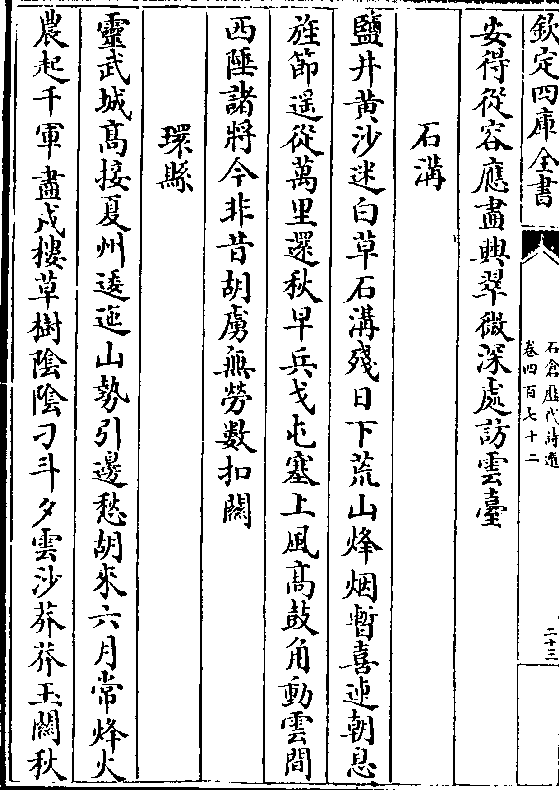 欽定四庫全書
石倉歷代詩選
卷四百七十二
二十三
安得從容應盡興翠微深處訪雲臺
石溝
鹽井黄沙迷白草石溝殘日下荒山烽烟暫喜連朝息
旌節遥從萬里還秋早兵戈屯塞上風髙鼓角動雲間
西陲諸將今非昔胡虜無勞數扣關
環縣
靈武城髙接夏州逶迤山勢引邊愁胡來六月常烽火
農起千軍盡戍樓草樹陰陰刁斗夕雲沙莽莽玉關秋